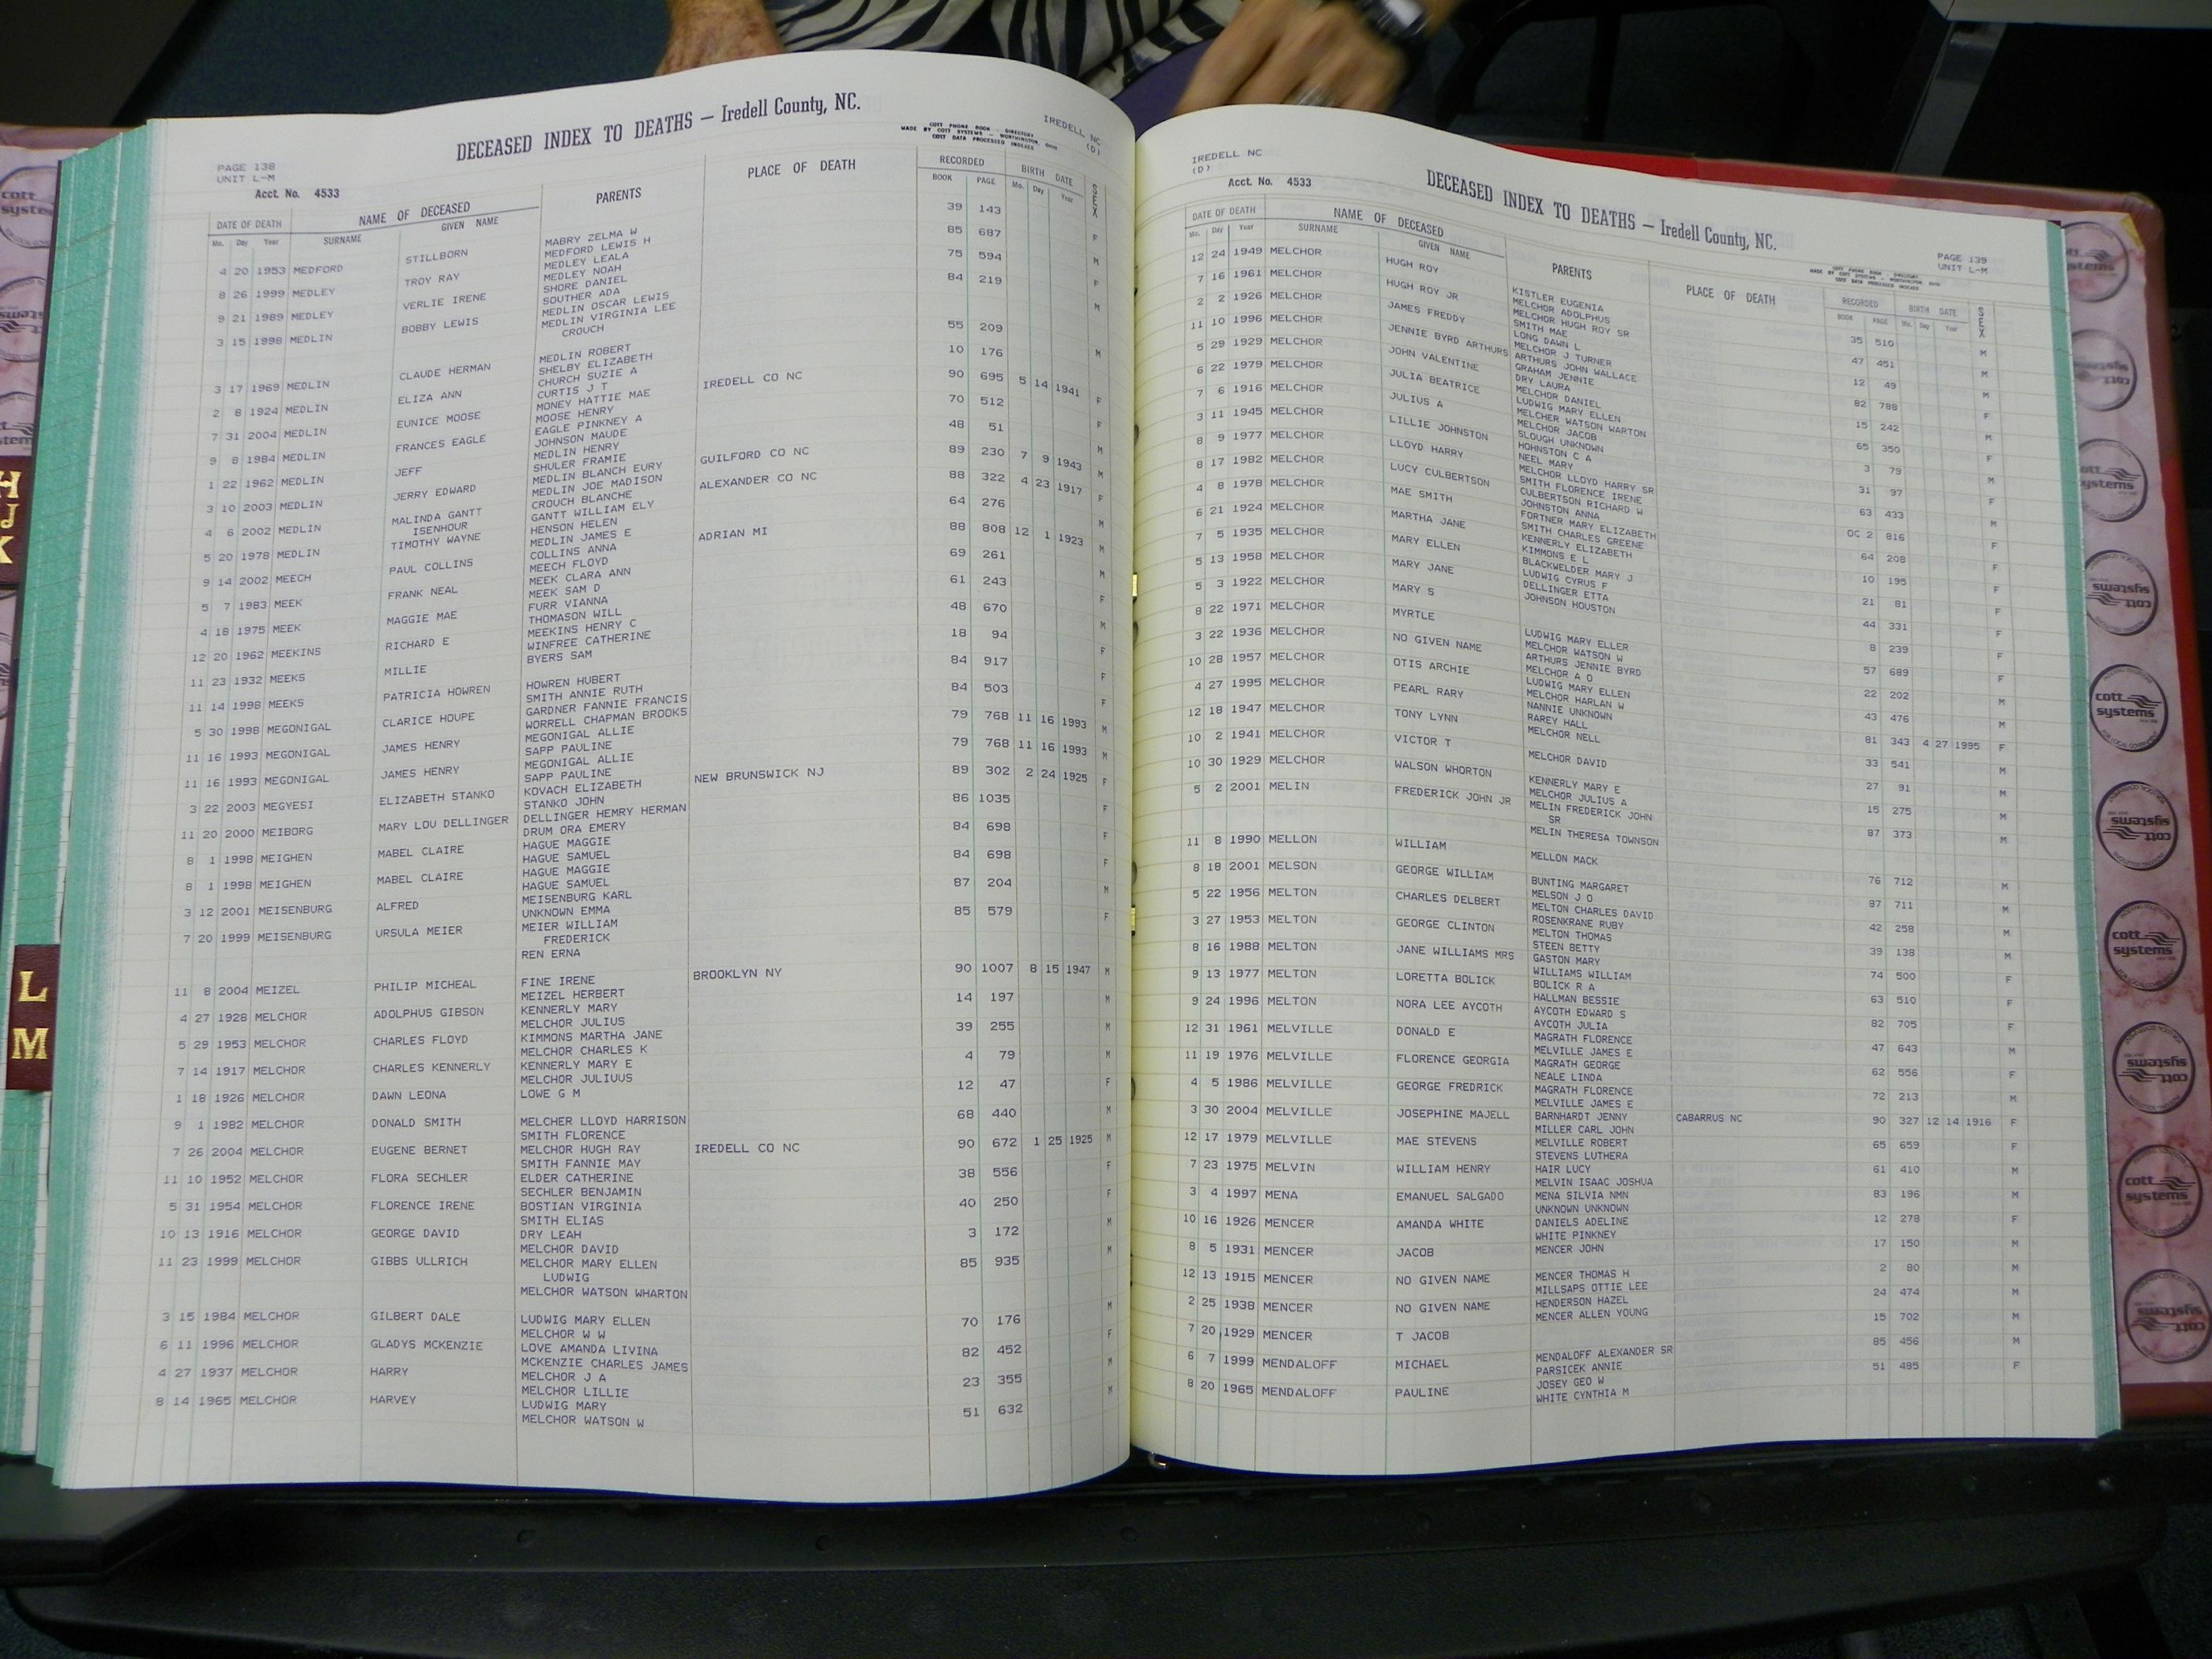 PAGE 138
UNIT L-M
Acct. No. 4533
DECEASED INDEX TO DEATHS — Iredell County, NC.
COTT PHONE BOOK - DIRECTORY
MADE BY COTT SYSTEMS - WORTHINGTON, OHIO
COTT DATA PROCESSED INDEXES
IREDELL NC
(D)
DATE OF DEATH NAME OF DECEASED PARENTS PLACE OF DEATH RECORDED BIRTH DATE SEX
Mo. Day Year SURNAME GIVEN NAME BOOK PAGE Mo. Day Year
4 20 1953 MEDFORD STILLBORN MABRY ZELMA W 39 143 F
MEDFORD LEWIS H
8 26 1999 MEDLEY TROY RAY MEDLEY LEALA 85 687 M
MEDLEY NOAH
9 21 1989 MEDLEY VERLIE IRENE SHORE DANIEL 75 594 F
SOUTHER ADA
3 15 1998 MEDLIN BOBBY LEWIS MEDLIN OSCAR LEWIS 84 219 M
MEDLIN VIRGINIA LEE
CROUCH
3 17 1969 MEDLIN CLAUDE HERMAN MEDLIN ROBERT 55 209 M
SHELBY ELIZABETH
2 8 1924 MEDLIN ELIZA ANN CHURCH SUZIE A 10 176
CURTIS J T
7 31 2004 MEDLIN EUNICE MOOSE MONEY HATTIE MAE IREDELL CO NC 90 695 5 14 1941 F
MOOSE HENRY
9 8 1984 MEDLIN FRANCES EAGLE EAGLE PINKNEY A 70 512 F
JOHNSON MAUDE
1 22 1962 MEDLIN JEFF MEDLIN HENRY 48 51 M
SHULER FRAMIE
3 10 2003 MEDLIN JERRY EDWARD MEDLIN BLANCH EURY GUILFORD CO NC 89 230 7 9 1943 M
MEDLIN JOE MADISON
4 6 2002 MEDLIN MALINDA GANTT CROUCH BLANCHE ALEXANDER CO NC 88 322 4 23 1917 F
ISENHOUR GANTT WILLIAM ELY
5 20 1978 MEDLIN TIMOTHY WAYNE HENSON HELEN 64 276 M
MEDLIN JAMES E
9 14 2002 MEECH PAUL COLLINS COLLINS ANNA ADRIAN MI 88 808 12 1 1923 M
MEECH FLOYD
5 7 1983 MEEK FRANK NEAL MEEK CLARA ANN 69 261 M
MEEK SAM D
4 18 1975 MEEK MAGGIE MAE FURR VIANNA 61 243 F
THOMASON WILL
12 20 1962 MEEKINS RICHARD E MEEKINS HENRY C 48 670 M
WINFREE CATHERINE
11 23 1932 MEEKS MILLIE BYERS SAM 18 94 F
11 14 1998 MEEKS PATRICIA HOWREN HOWREN HUBERT 84 917
SMITH ANNIE RUTH
5 30 1998 MEGONIGAL CLARICE HOUPE GARDNER FANNIE FRANCIS 84 503 F
WORRELL CHAPMAN BROOKS
11 16 1993 MEGONIGAL JAMES HENRY MEGONIGAL ALLIE 79 768 11 16 1993 M
SAPP PAULINE
11 16 1993 MEGONIGAL JAMES HENRY MEGONIGAL ALLIE 79 768 11 16 1993 M
SAPP PAULINE
3 22 2003 MEGYESI ELIZABETH STANKO KOVACH ELIZABETH NEW BRUNSWICK NJ 89 302 2 24 1925 F
STANKO JOHN
11 20 2000 MEIBORG MARY LOU DELLINGER DELLINGER HEMRY HERMAN 86 1035 F
DRUM ORA EMERY
8 1 1998 MEIGHEN MABEL CLAIRE HAGUE MAGGIE 84 698 F
HAGUE SAMUEL
8 1 1998 MEIGHEN MABEL CLAIRE HAGUE MAGGIE 84 698 F
HAGUE SAMUEL
3 12 2001 MEISENBURG ALFRED MEISENBURG KARL 87 204 M
UNKNOWN EMMA
7 20 1999 MEISENBURG URSULA MEIER MEIER WILLIAM 85 579 F
FREDERICK
REN ERNA
11 8 2004 MEIZEL PHILIP MICHEAL FINE IRENE BROOKLYN NY 90 1007 8 15 1947 M
MEIZEL HERBERT
4 27 1928 MELCHOR ADOLPHUS GIBSON KENNERLY MARY 14 197 M
MELCHOR JULIUS
5 29 1953 MELCHOR CHARLES FLOYD KIMMONS MARTHA JANE 39 255 M
MELCHOR CHARLES K
7 14 1917 MELCHOR CHARLES KENNERLY KENNERLY MARY E 4 79 M
MELCHOR JULIUUS
1 18 1926 MELCHOR DAWN LEONA LOWE G M 12 47 F
9 1 1982 MELCHOR DONALD SMITH MELCHER LLOYD HARRISON 68 440 M
SMITH FLORENCE
7 26 2004 MELCHOR EUGENE BERNET MELCHOR HUGH RAY IREDELL CO NC 90 672 1 25 1925 M
SMITH FANNIE MAY
11 10 1952 MELCHOR FLORA SECHLER ELDER CATHERINE 38 556 F
SECHLER BENJAMIN
5 31 1954 MELCHOR FLORENCE IRENE BOSTIAN VIRGINIA 40 250 F
SMITH ELIAS
10 13 1916 MELCHOR GEORGE DAVID DRY LEAH 3 172 M
MELCHOR DAVID
11 23 1999 MELCHOR GIBBS ULLRICH MELCHOR MARY ELLEN 85 935 M
LUDWIG
MELCHOR WATSON WHARTON
3 15 1984 MELCHOR GILBERT DALE LUDWIG MARY ELLEN 70 176 M
MELCHOR W W
6 11 1996 MELCHOR GLADYS MCKENZIE LOVE AMANDA LIVINA 82 452 F
MCKENZIE CHARLES JAMES
4 27 1937 MELCHOR HARRY MELCHOR J A 23 355 M
MELCHOR LILLIE
8 14 1965 MELCHOR HARVEY LUDWIG MARY 51 632 M
MELCHOR WATSON W
IREDELL NC
(D)
Acct. No. 4533
DECEASED INDEX TO DEATHS — Iredell County, NC.
PAGE 139
UNIT L-M
COTT PHONE BOOK - DIRECTORY
MADE BY COTT SYSTEMS - WORTHINGTON, OHIO
COTT DATA PROCESSED INDEXES
DATE OF DEATH NAME OF DECEASED PARENTS PLACE OF DEATH RECORDED BIRTH DATE SEX
Mo. Day Year SURNAME GIVEN NAME BOOK PAGE Mo. Day Year
12 24 1949 MELCHOR HUGH ROY KISTLER EUGENIA 35 510 M
MELCHOR ADOLPHUS
7 16 1961 MELCHOR HUGH ROY JR MELCHOR HUGH ROY SR 47 451 M
SMITH MAE
2 2 1926 MELCHOR JAMES FREDDY LONG DAWN L 12 49 M
MELCHOR J TURNER
11 10 1996 MELCHOR JENNIE BYRD ARTHURS ARTHURS JOHN WALLACE 82 788 F
GRAHAM JENNIE
5 29 1929 MELCHOR JOHN VALENTINE DRY LAURA 15 242 M
MELCHOR DANIEL
6 22 1979 MELCHOR JULIA BEATRICE LUDWIG MARY ELLEN 65 350 F
MELCHER WATSON WARTON
7 6 1916 MELCHOR JULIUS A MELCHOR JACOB 3 79 M
SLOUGH UNKNOWN
3 11 1945 MELCHOR LILLIE JOHNSTON HOHNSTON C A 31 97 F
NEEL MARY
8 9 1977 MELCHOR LLOYD HARRY MELCHOR LLOYD HARRY SR 63 433 M
SMITH FLORENCE IRENE
8 17 1982 MELCHOR LUCY CULBERTSON CULBERTSON RICHARD W DC 2 816 F
JOHNSTON ANNA
4 8 1978 MELCHOR MAE SMITH FORTNER MARY ELIZABETH 64 208 F
SMITH CHARLES GREENE
6 21 1924 MELCHOR MARTHA JANE KENNERLY ELIZABETH 10 195 F
KIMMONS E L
7 5 1935 MELCHOR MARY ELLEN BLACKWELDER MARY J 21 81 F
LUDWIG CYRUS F
5 13 1958 MELCHOR MARY JANE DELLINGER ETTA 44 331 F
JOHNSON HOUSTON
5 3 1922 MELCHOR MARY S 8 239 F
8 22 1971 MELCHOR MYRTLE LUDWIG MARY ELLER 57 689 F
MELCHOR WATSON W
3 22 1936 MELCHOR NO GIVEN NAME ARTHURS JENNIE BYRD 22 202
MELCHOR A O
10 28 1957 MELCHOR OTIS ARCHIE LUDWIG MARY ELLEN 43 476 M
MELCHOR HARLAN W
4 27 1995 MELCHOR PEARL RARY NANNIE UNKNOWN 81 343 4 27 1995 F
RAREY HALL
12 18 1947 MELCHOR TONY LYNN MELCHOR NELL 33 541 M
10 2 1941 MELCHOR VICTOR T MELCHOR DAVID 27 91 M
10 30 1929 MELCHOR WALSON WHORTON KENNERLY MARY E 15 275 M
MELCHOR JULIUS A
5 2 2001 MELIN FREDERICK JOHN JR MELIN FREDERICK JOHN 87 373 M
SR
MELIN THERESA TOWNSON
11 8 1990 MELLON WILLIAM MELLON MACK 76 712 M
8 18 2001 MELSON GEORGE WILLIAM BUNTING MARGARET 87 711 M
MELSON J O
5 22 1956 MELTON CHARLES DELBERT MELTON CHARLES DAVID 42 258 M
ROSENKRANE RUBY
3 27 1953 MELTON GEORGE CLINTON MELTON THOMAS 39 138 M
STEEN BETTY
8 16 1988 MELTON JANE WILLIAMS MRS GASTON MARY 74 500 F
WILLIAMS WILLIAM
9 13 1977 MELTON LORETTA BOLICK BOLICK R A 63 510 F
HALLMAN BESSIE
9 24 1996 MELTON NORA LEE AYCOTH AYCOTH EDWARD S 82 705 F
AYCOTH JULIA
12 31 1961 MELVILLE DONALD E MAGRATH FLORENCE 47 643 M
MELVILLE JAMES E
11 19 1976 MELVILLE FLORENCE GEORGIA MAGRATH GEORGE 62 556 F
NEALE LINDA
4 5 1986 MELVILLE GEORGE FREDRICK MAGRATH FLORENCE 72 213 M
MELVILLE JAMES E
3 30 2004 MELVILLE JOSEPHINE MAJELL BARNHARDT JENNY CABARRUS NC 90 327 12 14 1916 F
MILLER CARL JOHN
12 17 1979 MELVILLE MAE STEVENS MELVILLE ROBERT 65 659 F
STEVENS LUTHERA
7 23 1975 MELVIN WILLIAM HENRY HAIR LUCY 61 410 M
MELVIN ISAAC JOSHUA
3 4 1997 MENA EMANUEL SALGADO MENA SILVIA NMN 83 196 M
UNKNOWN UNKNOWN
10 16 1926 MENCER AMANDA WHITE DANIELS ADELINE 12 278 F
WHITE PINKNEY
8 5 1931 MENCER JACOB MENCER JOHN 17 150 M
12 13 1915 MENCER NO GIVEN NAME MENCER THOMAS H 2 80 M
MILLSAPS OTTIE LEE
2 25 1938 MENCER NO GIVEN NAME HENDERSON HAZEL 24 474 M
MENCER ALLEN YOUNG
7 20 1929 MENCER T JACOB 15 702 M
6 7 1999 MENDALOFF MICHAEL MENDALOFF ALEXANDER SR 85 456 M
PARSICEK ANNIE
8 20 1965 MENDALOFF PAULINE JOSEY GEO W 51 485 F
WHITE CYNTHIA M
H
J
K
L
M
cott systems
cott systems
cott systems
cott systems
cott systems
cott systems